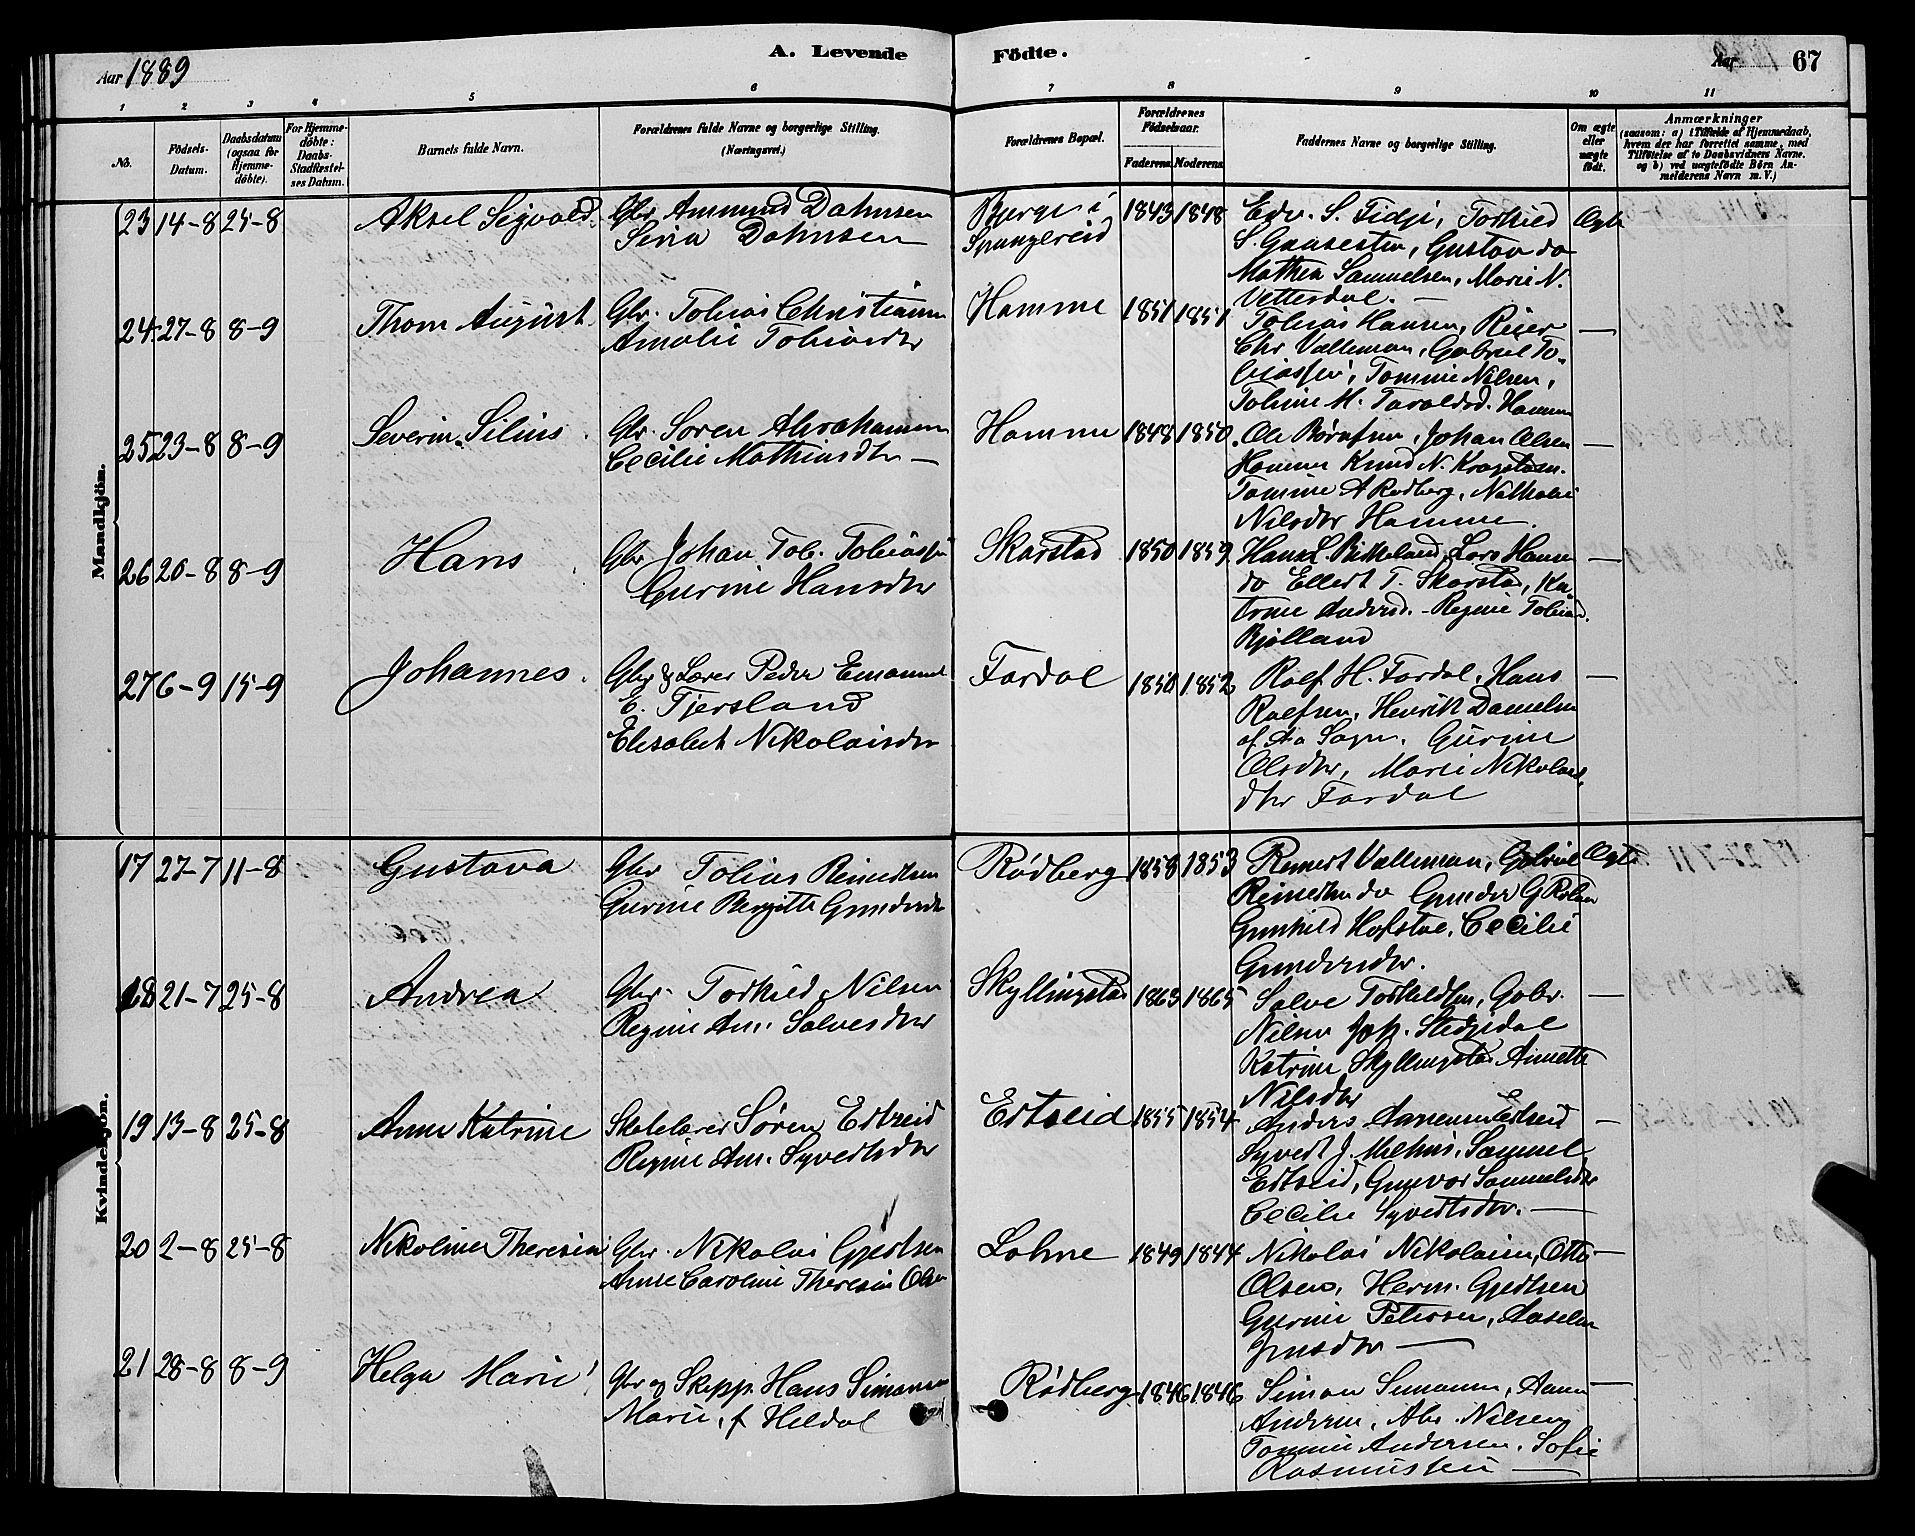 A. Levende Födte.
Aar 1889
Aar 67
1 2 3 4 5 6 7 8 9 10 11
No.
Födsels-Datum.
Daabsdatum (ogsaa for Hjemme-döbte).
For Hjemme-döbte: Daabs-Stadfæstel-ses Datum.
Barnets fulde Navn.
Forældrenes fulde Navne og borgerlige Stilling. (Næringsvei.)
Forældrenes Bopæl.
Forældrenes Födselsaar.
Faderens. Moderens.
Faddernes Navne og borgerlige Stilling.
Om ægte eller uægte födt.
Anmærkninger
(saasom: a) i Tilfælde af Hjemmedaab, hvem der har forrettet samme, med Tilföielse af to Daabsvidners Navne. og b) ved uægtefödte Börn An-melderens Navn m. V.)
Mandkjön.
23 14-8 25-8 Aksel Sigvald Gbr. Ammund Dahnsen
Siria Dahnsen
Bjerge i
Spangereid
1843 1848 Edv. S. Fidje, Torkild
S. , Gustav do
Mathea Samuelsen, Marie N.
Vetterdal. —
Ægte
24 27-8 8-9 Thom August Gbr. Tobias Christiansen
Amalie Tobiasdtr
Homme 1851 1851 Tobias Hansen, Reier
Chr. Valleman, Gabriel To-
biassen, Tommine Nilsen,
Toline M. Taraldsd. Homme
—
25 23-8 8-9 Severin Silius Gbr. Soren Abrahamsen
Cecilie Mathiasdtr —
Homme 1848 1850 Ole , Johan Olsen
Homme Knud N.
Tomine A Rødberg, Nathalie
Nilsdtr Homme.
—
26 20-8 8-9 Hans Gbr Johan Tob. Tobiassen
Gurine Hansdtr
Skarstad 1850 1859 Hans L. Birkeland, Lars Hansen
do Ellert T. Skarstad, Ka-
trine Andersd. - Regine Tobiasd.
Bjølland
—
27 6-9 15-9 Johannes Gbr & Lærer Peder Emanuel
E. Tjersland
Elisabeth Nikolaisdtr
Fardal 1850 1852 Ralf H. Fardal, Hans
Ralfsen, Henrik Danielsen
af Aa Sogn. Gurine
Olsdtr, Marie Nikolais
dtr Fardal
—
Kvindekjön.
17 27-7 11-8 Gustava Gbr Tobias Reinertsen
Gurine Birgitte Gundersdtr
Rødberg 1858 1853 Reinert Valleman, Gabriel
Reinertsen do Gunder G
Gunhild Hofstøl, Cecilie
Gundersdtr.
Ægte
18 21-7 25-8 Andrea Gbr. Torkild Nilsen
Regine An. Salvesdtr
Skyllingstad 1863 1865 Salve Torkildsen, Gabr.
Nilsen Joh. Stedjedal
Katrine Skyllingstad Annette
Nilsdtr
—
19 13-8 25-8 Anna Katrine Skolelærer Søren Ertseid
Regine An. Syvertsdtr
Ertseid 1855 1854 Anders Aanensen Ertseid
Syvert J. Melhus, Samuel
Ertseid, Gunvor Samuelsdtr
Cecilie Syvertsdtr. —
—
20 2-8 25-8 Nikoline Theresia Gbr. Nikolai Gjertsen
Anne Caroline Theresia Olsen
Lohne 1849 1844 Nikolai Nikolaisen, Otto
Olsen, Herm. Gjertsen
Gurine Petersen, Aaselne
Jensdtr —
—
21 28-8 8-9 Helga Marie Gbr og Skipp. Hans Simonsen
Marie, f Heldal
Rødberg 1846 1846 Simon Simonsen, Aanen
Andersen, Abr. Nilsen
Tomine Andersen, Sofie
Rasmussen —
—